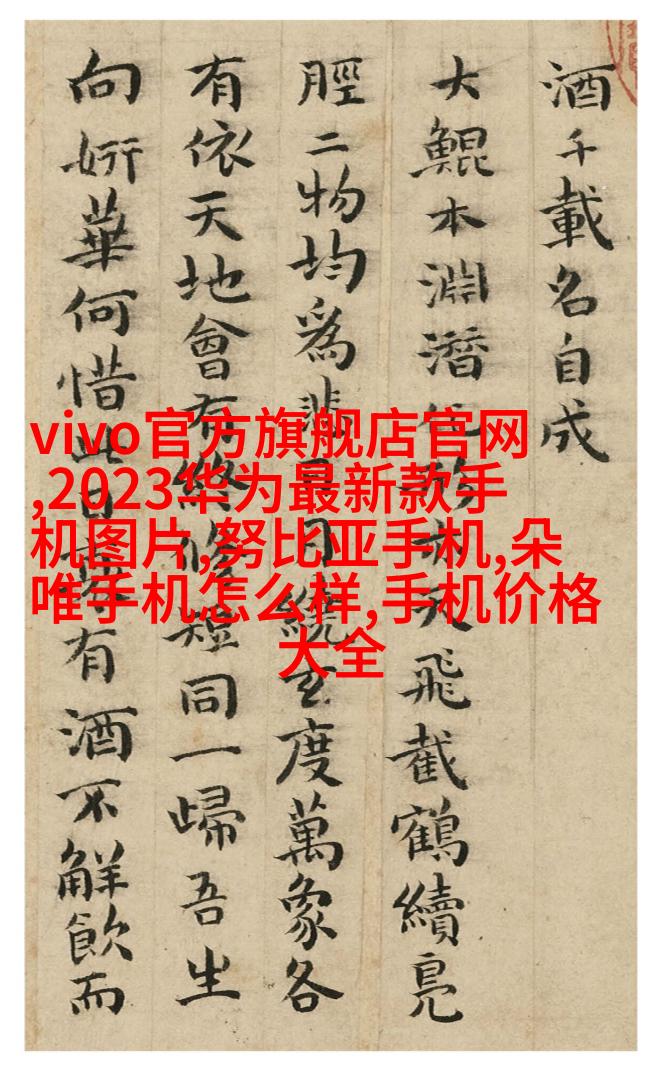 酒千載名自成
大鯤本淵潛天飛截鶴續鳧
脛二物均爲悲日月繞玄度萬象各
有依天地會有終脩短同一歸吾生
向妍華何惜此日有酒不解飲而
vivo官方旗舰店官网
,2023华为最新款手
机图片,努比亚手机,朵
唯手机怎么样,手机价格
大全